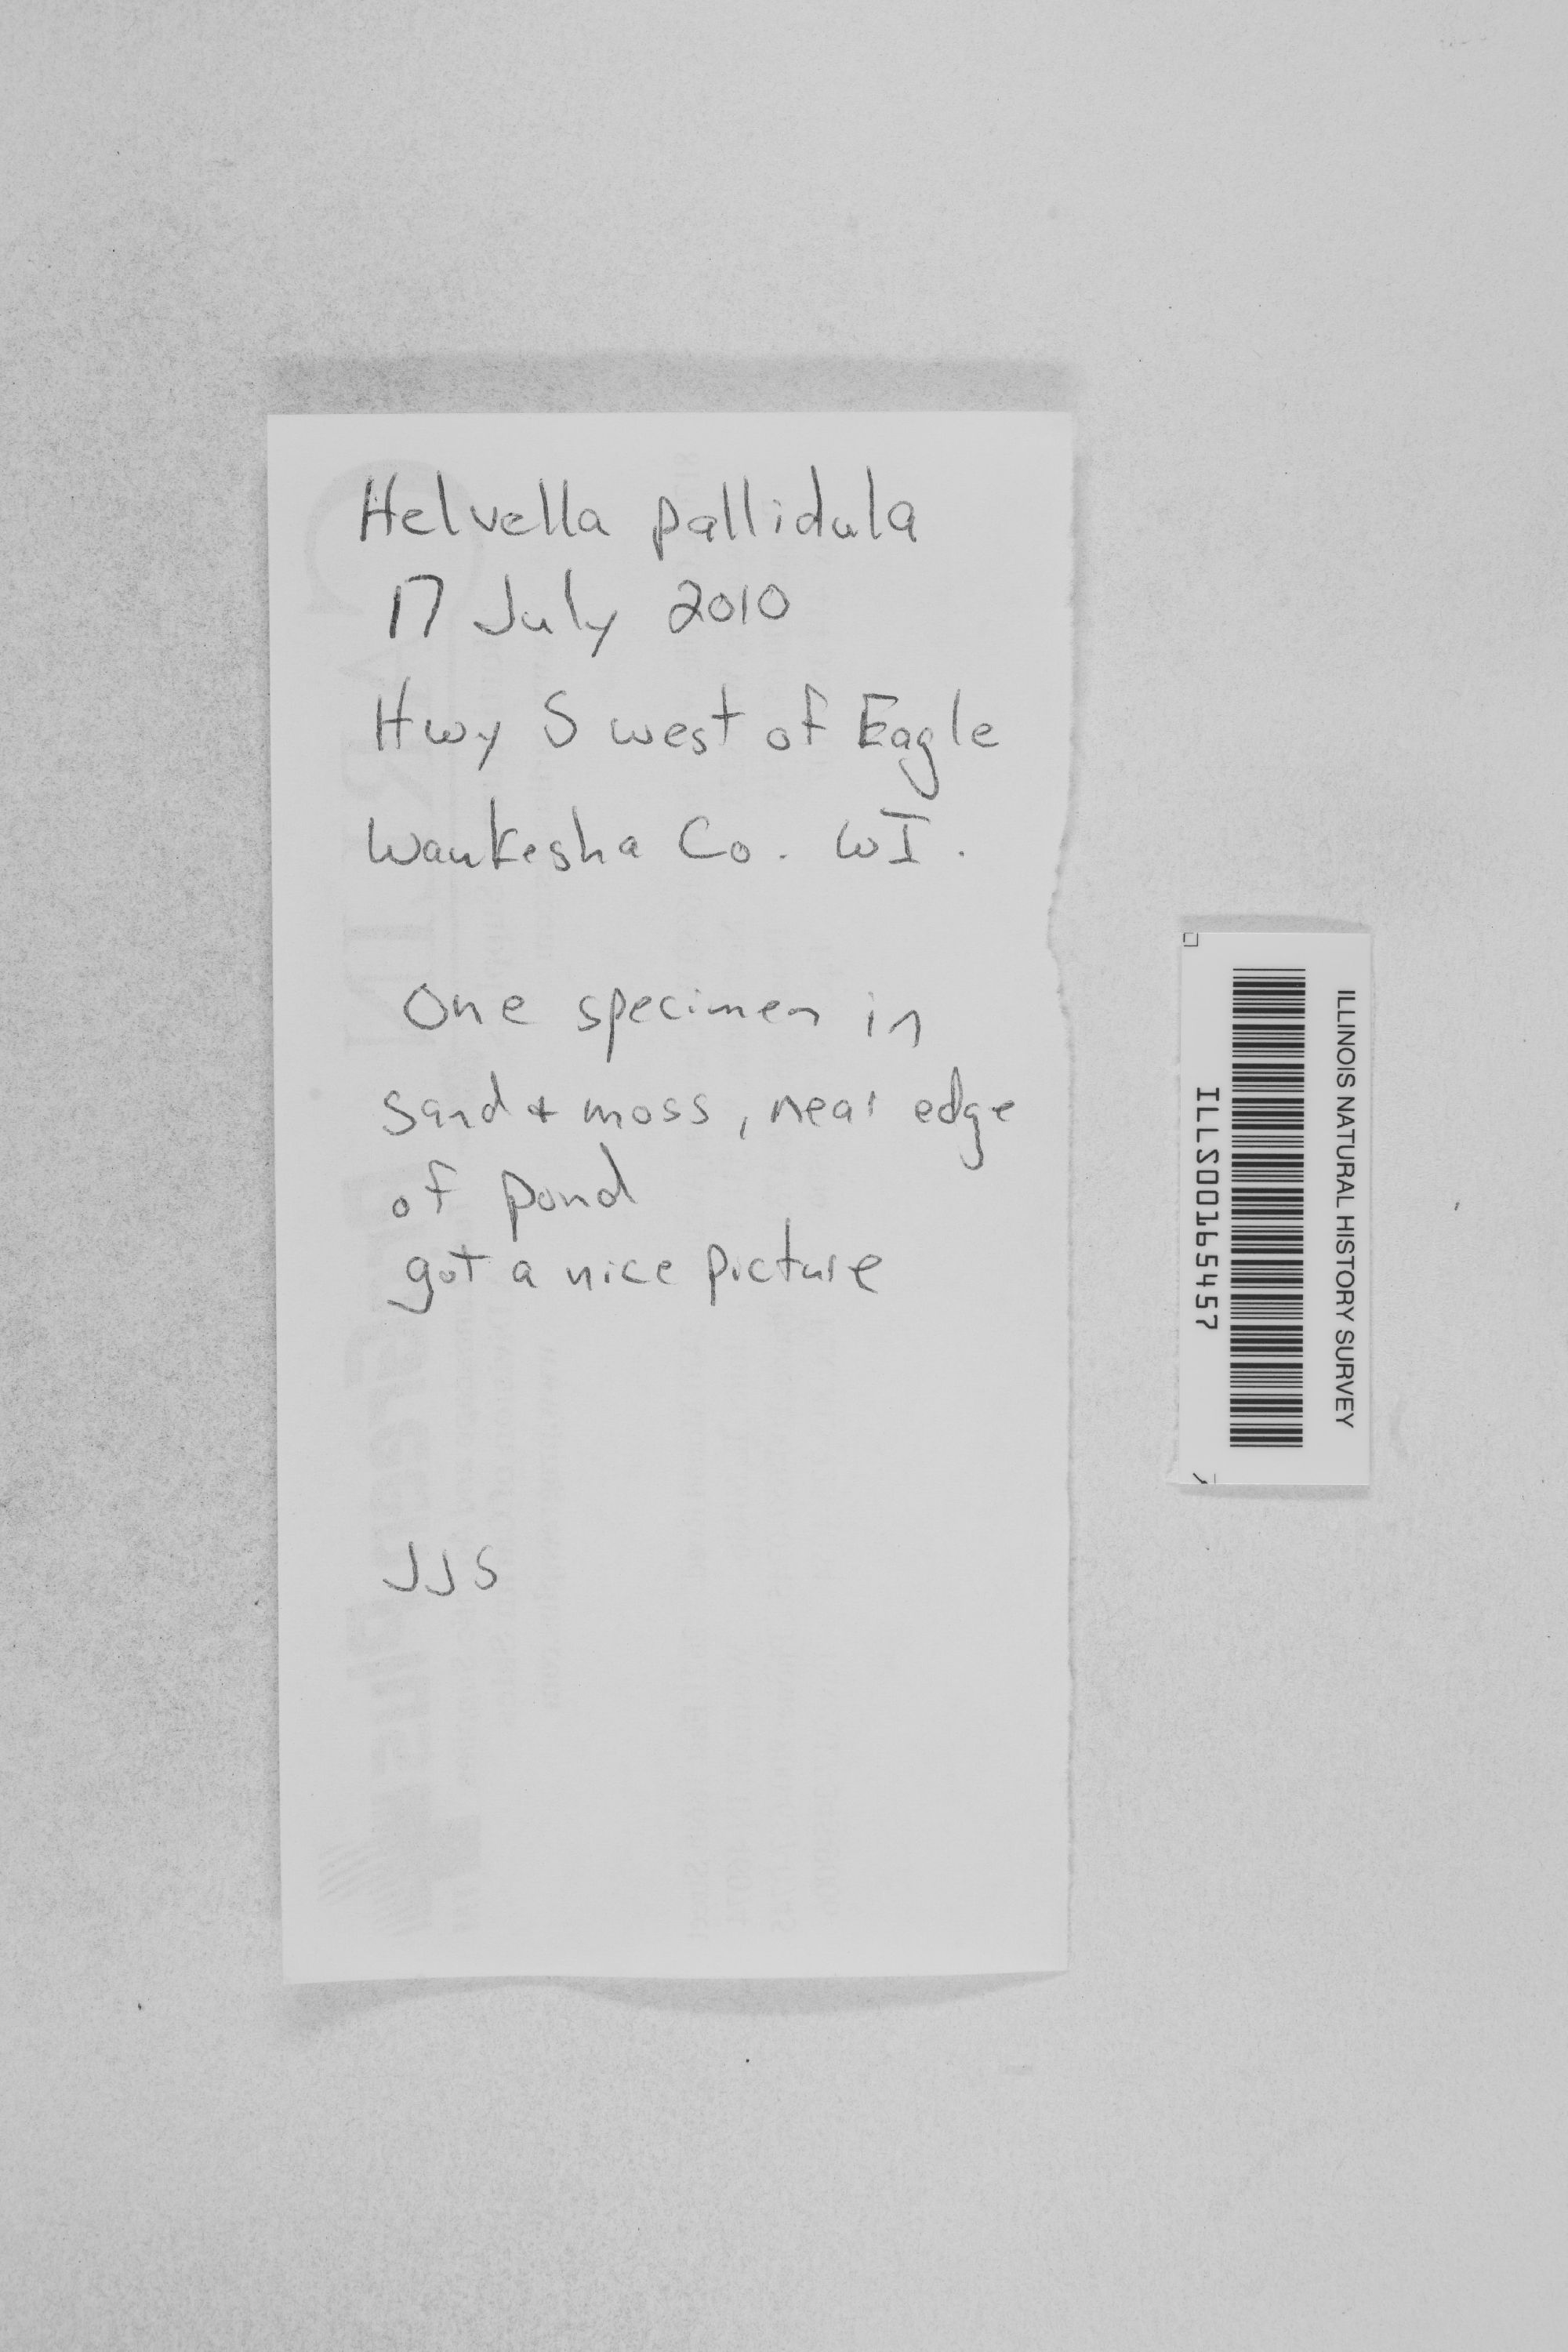 Helvella pallidula
17 July 2010
Hwy S west of Eagle
Waukesha Co. WI.
One specimen in
sand + moss, near edge
of pond
got a nice picture
JJS
ILLINOIS NATURAL HISTORY SURVEY
ILLS00165457